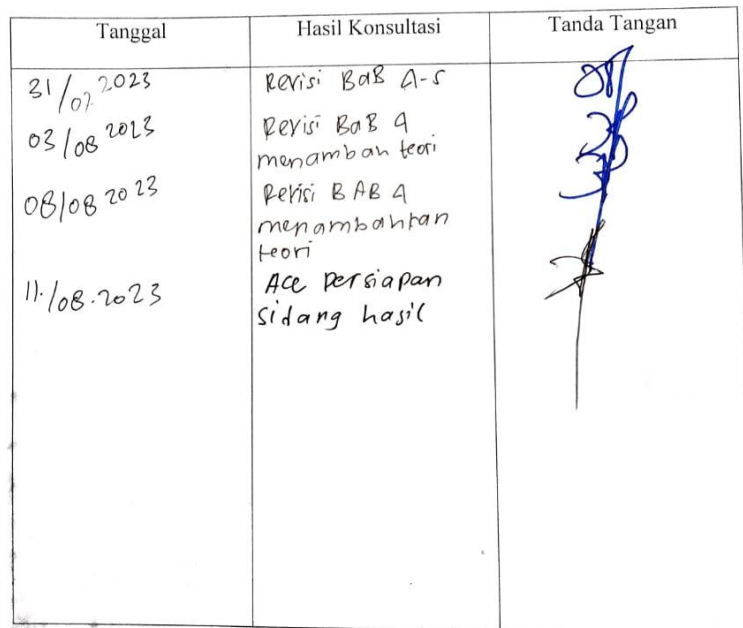 Tanggal Hasil Konsultasi Tanda Tangan
31/07 2023 Revisi BaB 4-5
03/08 2023 Revisi BaB 4
menambah teori
08/08 2023 Revisi BAB 4
menambahkan
teori
11./08.2023 Acc persiapan
sidang hasil